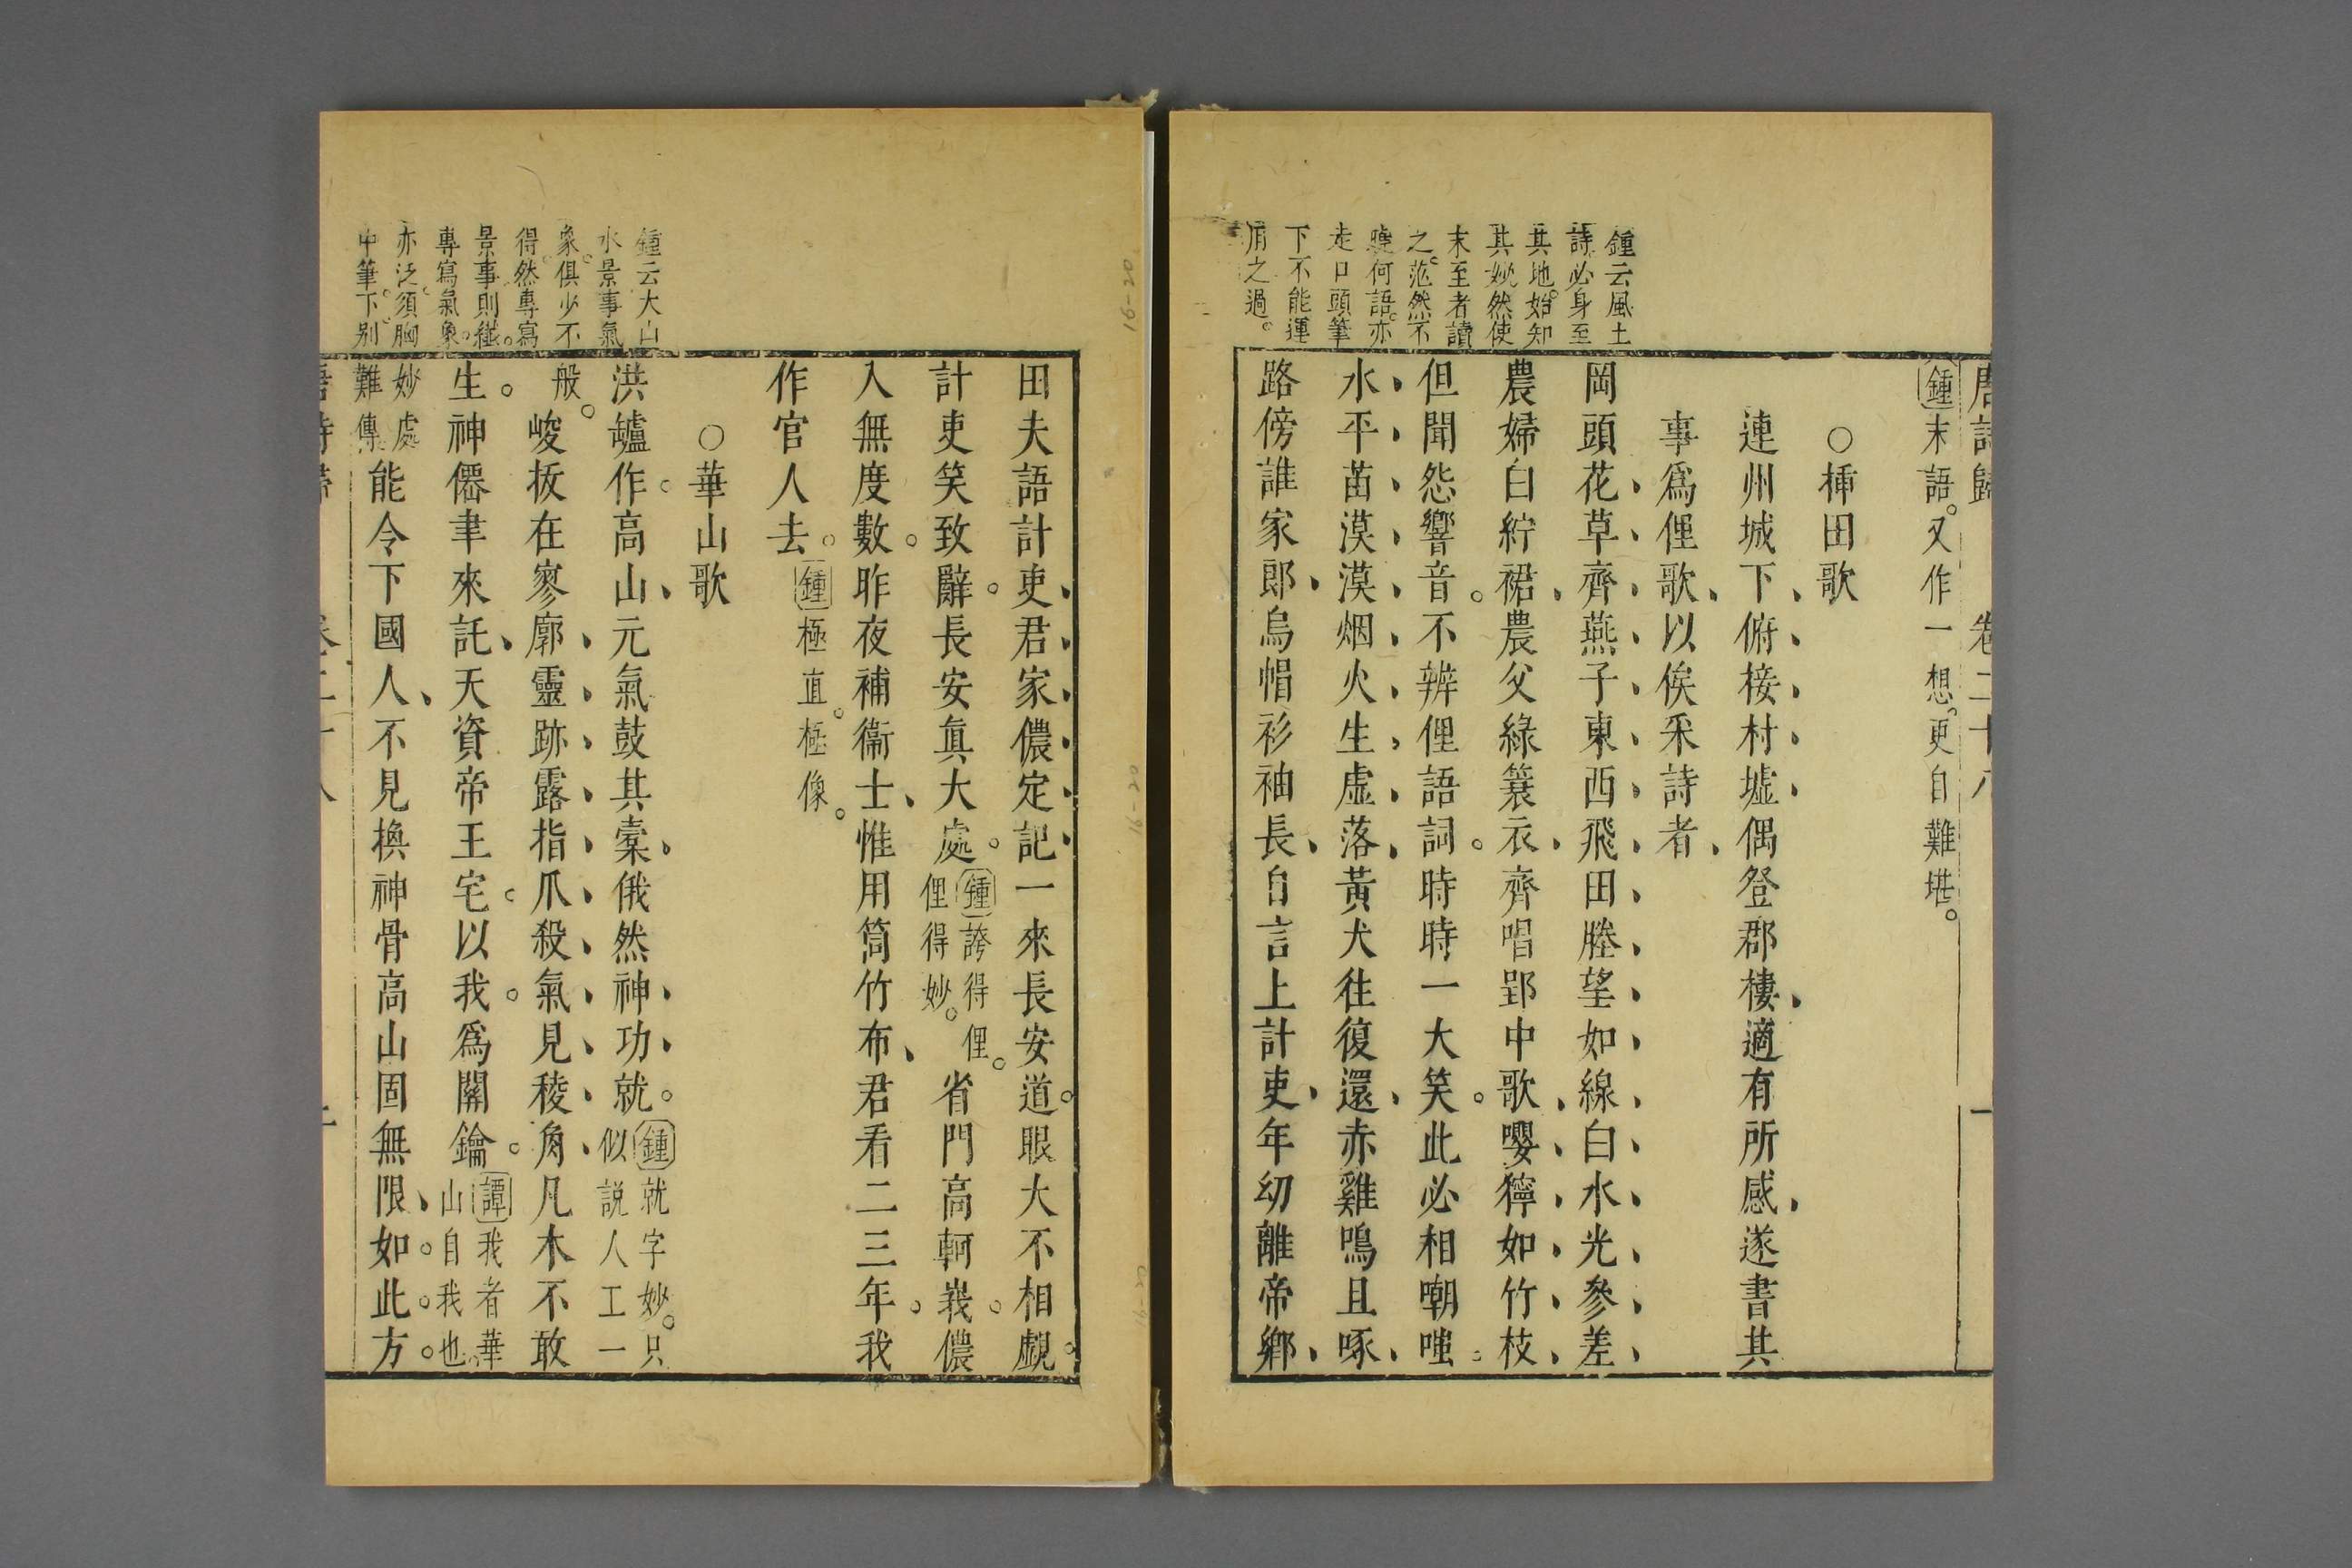 唐詩歸 卷二十八 一
鍾末語。又作一想。更自難堪。
○揷田歌
連州城下、俯接村墟、偶登郡樓、適有所感、遂書其
事爲俚歌、以俟采詩者、
岡頭花草齊燕子東西飛田塍望如線白水光參差
農婦白紵裙農父綠簑衣齊唱郢中歌嚶獰如竹枝
但聞怨響音不辨俚語詞時時一大笑此必相嘲嗤
水平苗漠漠烟火生虛落黃犬往復還赤雞鳴且啄
路傍誰家郞烏帽衫袖長自言上計吏年幼離帝鄉
鍾云風土
詩必身至
其地始知
其妙然使
未至者讀
之茫然不
曉何語亦
走口頭筆
下不能運
用之過。
田夫語計吏君家儂定記一來長安道眼大不相覷
計吏笑致辭長安眞大處鍾誇得俚。
俚得妙。省門高軻峩儂
入無度數昨夜補衞士惟用筒竹布君看二三年我
作官人去鍾極直。極像。
○華山歌
洪罏作高山元氣鼓其橐俄然神功就鍾就字妙。只
似説人工一
般。峻拔在寥廓靈跡露指爪殺氣見稜角凡木不敢
生神僊聿來託天資帝王宅以我爲關鑰譚我者華
山自我也
妙處
難傳能令下國人不見換神骨高山固無限如此方
鍾云大山
水景事氣
象俱少不
得然專寫
景事則纖。
專寫氣象。
亦泛須胸
中筆下別